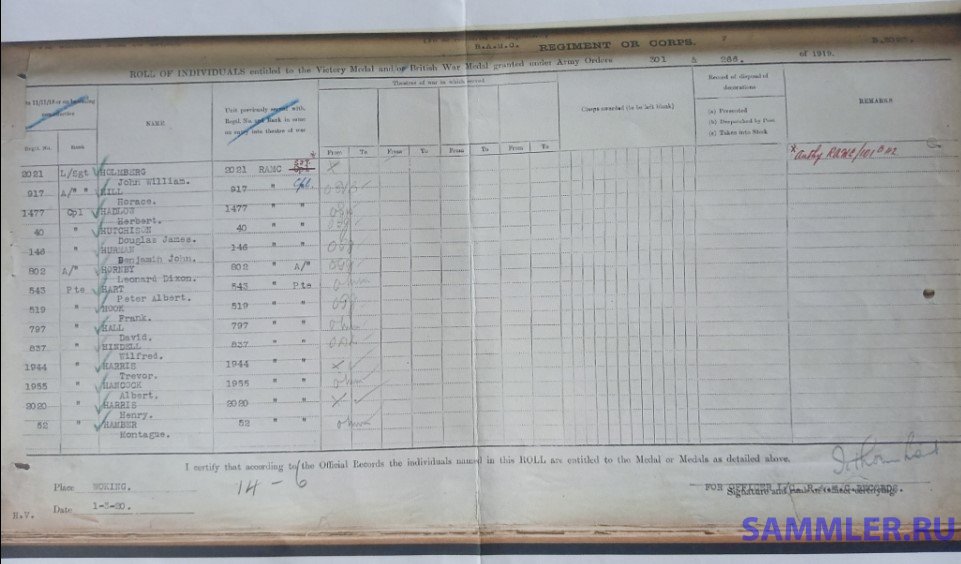 R.A.M.C. REGIMENT OR CORPS. 7
ROLL OF INDIVIDUALS entitled to the Victory Medal and/or British War Medal granted under Army Orders 301 & 266. of 1919.
Theatres of war in which served
Regtl. No. Rank
NAME
Unit previously served with,
Regtl. No. and Rank in same
on entry into theatre of war
From To From To From To From To
Clasps awarded (to be left blank)
Record of disposal of
decorations
(a) Presented
(b) Despatched by Post
(c) Taken into Stock
REMARKS
2021 L/Sgt HOLMBERG 2021 RAMC
John William.
917 A/" " HILL 917 " Cpl.
Horace.
1477 Cpl HADLOW 1477 " "
Herbert.
40 " HUTCHISON 40 " "
Douglas James.
146 " HURMAN 146 " "
Benjamin John.
802 A/" HORNBY 802 " A/"
Leonard Dixon.
543 Pte HART 543 " Pte
Peter Albert.
519 " HOOK 519 " "
Frank.
797 " HALL 797 " "
David.
837 " HINDELL 837 " "
Wilfred.
1944 " HARRIS 1944 " "
Trevor.
1955 " HANCOCK 1955 " "
Albert.
2020 " HARRIS 2020 " "
Henry.
52 " HAMBER 52 " "
Montague.
I certify that according to the Official Records the individuals named in this ROLL are entitled to the Medal or Medals as detailed above.
14 - 6
Place WOKING.
Date 1-3-20.
H.V.
FOR OFFICER I/C. R.A.M.C. RECORDS.
SAMMLER.RU